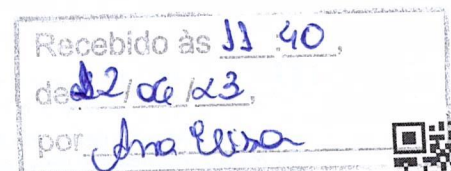 Recebido às 11:40,
de 12/06/23,
por Ana Elisa